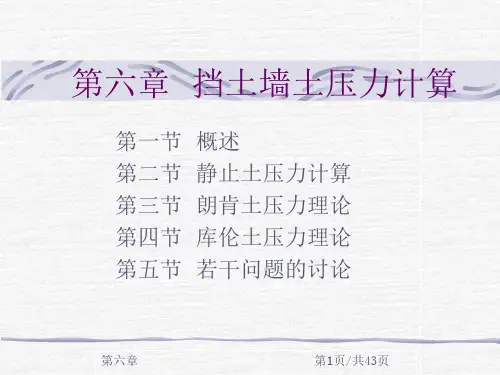 第六章 挡土墙土压力计算
第一节 概述
第二节 静止土压力计算
第三节 朗肯土压力理论
第四节 库伦土压力理论
第五节 若干问题的讨论
第六章 第1页/共43页